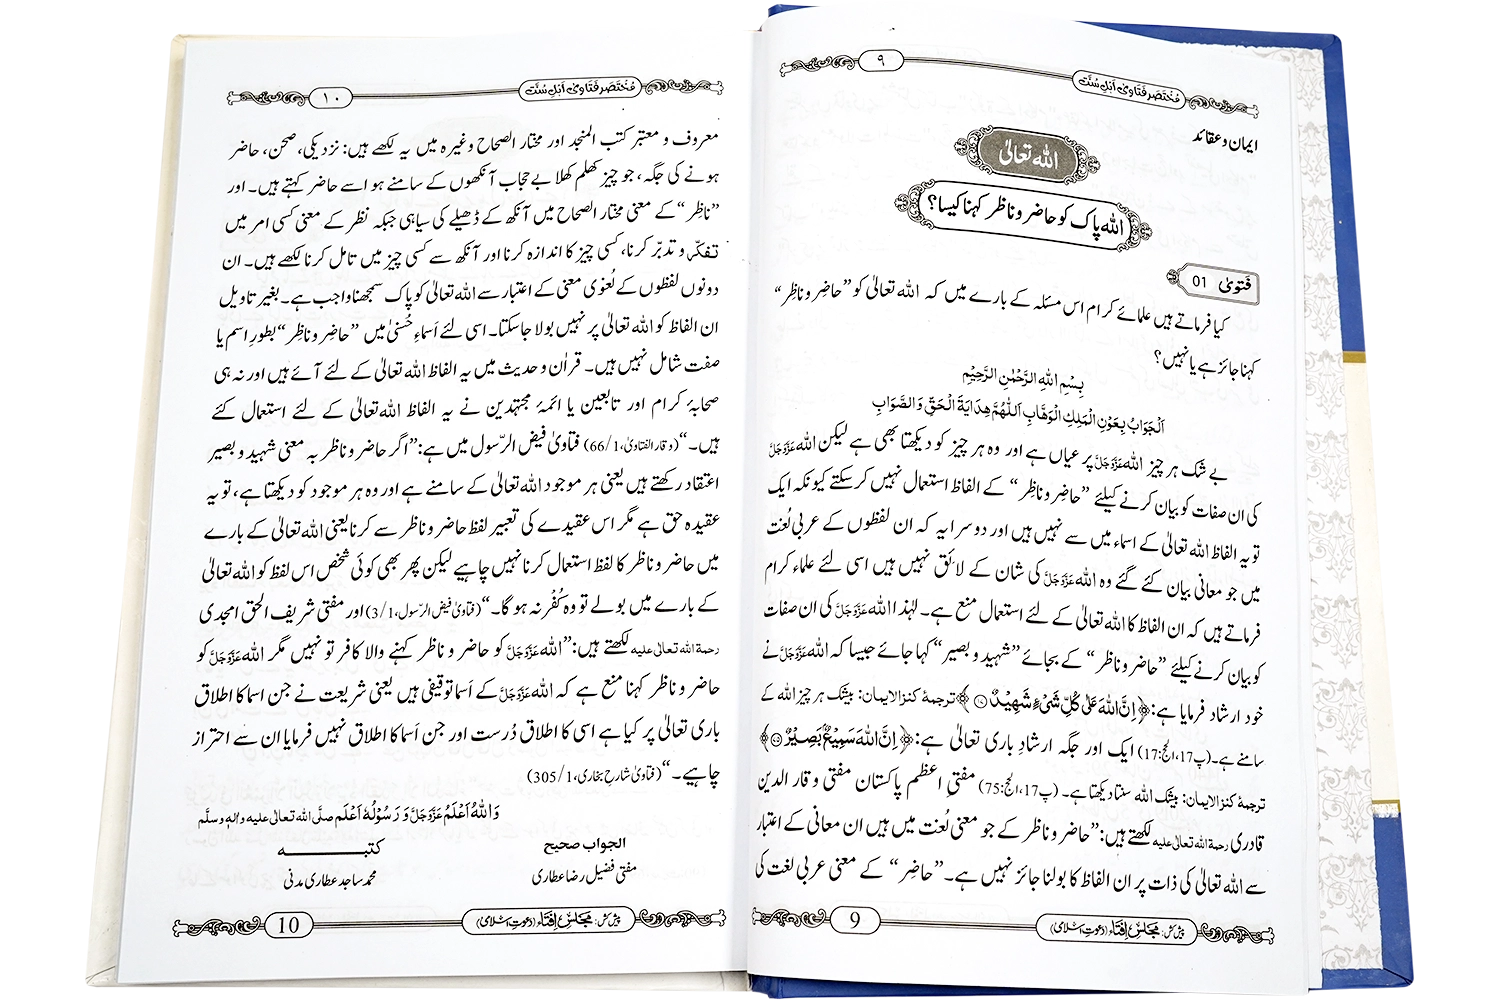 مُخْتَصَر فَتَاویٰ اَہلِ سُنَّت
۹
ایمان و عقائد
اللہ تعالیٰ
اللہ پاک کو حاضر و ناظر کہنا کیسا؟
فتویٰ 01
کیا فرماتے ہیں علمائے کرام اس مسئلہ کے بارے میں کہ اللہ تعالیٰ کو ”حاضِر و ناظِر“
کہنا جائز ہے یا نہیں؟
بِسْمِ اللہِ الرَّحْمٰنِ الرَّحِیْمِ
اَلْجَوَابُ بِعَوْنِ الْمَلِکِ الْوَھَّابِ اَللّٰھُمَّ ھِدَایَۃَ الْحَقِّ وَالصَّوَابِ
بے شک ہر چیز اللہ عَزَّوَجَلَّ پر عیاں ہے اور وہ ہر چیز کو دیکھتا بھی ہے لیکن اللہ عَزَّوَجَلَّ
کی ان صفات کو بیان کرنے کیلئے ”حاضِر و ناظِر“ کے الفاظ استعمال نہیں کرسکتے کیونکہ ایک
تو یہ الفاظ اللہ تعالیٰ کے اسماء میں سے نہیں ہیں اور دوسرا یہ کہ ان لفظوں کے عربی لُغت
میں جو معانی بیان کئے گئے وہ اللہ عَزَّوَجَلَّ کی شان کے لائق نہیں ہیں اسی لئے علماء کرام
فرماتے ہیں کہ ان الفاظ کا اللہ تعالیٰ کے لئے استعمال منع ہے۔ لہٰذا اللہ عَزَّوَجَلَّ کی ان صفات
کو بیان کرنے کیلئے ”حاضِر و ناظر“ کے بجائے ”شہید و بصیر“ کہا جائے جیسا کہ اللہ عَزَّوَجَلَّ نے
خود ارشاد فرمایا ہے: ﴿اِنَّ اللہَ عَلٰی کُلِّ شَیْءٍ شَہِیْدٌ﴾ ترجمۂ کنزالایمان: بیشک ہر چیز اللہ کے
سامنے ہے۔ (پ17، الحج:17) ایک اور جگہ ارشادِ باری تعالیٰ ہے: ﴿اِنَّ اللہَ سَمِیْعٌۢ بَصِیْرٌ﴾
ترجمۂ کنزالایمان: بیشک اللہ سنتا دیکھتا ہے۔ (پ17، الحج:75) مفتیِ اعظم پاکستان مفتی وقار الدین
قادری رحمۃ اللہ تعالیٰ علیہ لکھتے ہیں: ”حاضر و ناظر کے جو معنی لُغت میں ہیں ان معانی کے اعتبار
سے اللہ تعالیٰ کی ذات پر ان الفاظ کا بولنا جائز نہیں ہے۔ ”حاضِر“ کے معنی عربی لغت کی
پیش کش: مجلس اِفتاء (دعوتِ اسلامی)
9
مُخْتَصَر فَتَاویٰ اَہلِ سُنَّت
۱۰
معروف و معتبر کتب المنجد اور مختار الصحاح وغیرہ میں یہ لکھے ہیں: نزدیکی، صحن، حاضر
ہونے کی جگہ، جو چیز کھلم کھلا بے حجاب آنکھوں کے سامنے ہو اسے حاضر کہتے ہیں۔ اور
”ناظِر“ کے معنی مختار الصحاح میں آنکھ کے ڈھیلے کی سیاہی جبکہ نظر کے معنی کسی امر میں
تفکّر و تدبّر کرنا، کسی چیز کا اندازہ کرنا اور آنکھ سے کسی چیز میں تامل کرنا لکھے ہیں۔ ان
دونوں لفظوں کے لُغوی معنی کے اعتبار سے اللہ تعالیٰ کو پاک سمجھنا واجب ہے۔ بغیر تاویل
ان الفاظ کو اللہ تعالیٰ پر نہیں بولا جاسکتا۔ اسی لئے اَسماءِ حُسنیٰ میں ”حاضِر و ناظِر“ بطورِ اسم یا
صفت شامل نہیں ہیں۔ قراٰن و حدیث میں یہ الفاظ اللہ تعالیٰ کے لئے آئے ہیں اور نہ ہی
صحابۂ کرام اور تابعین یا ائمۂ مجتہدین نے یہ الفاظ اللہ تعالیٰ کے لئے استعمال کئے
ہیں۔“ (وقار الفتاویٰ، 1/66) فتاویٰ فیض الرّسول میں ہے: ”اگر حاضر و ناظر بہ معنی شہید و بصیر
اعتقاد رکھتے ہیں یعنی ہر موجود اللہ تعالیٰ کے سامنے ہے اور وہ ہر موجود کو دیکھتا ہے، تو یہ
عقیدہ حق ہے مگر اس عقیدے کی تعبیر لفظ حاضر و ناظر سے کرنا یعنی اللہ تعالیٰ کے بارے
میں حاضر و ناظر کا لفظ استعمال کرنا نہیں چاہیے لیکن پھر بھی کوئی شخص اس لفظ کو اللہ تعالیٰ
کے بارے میں بولے تو وہ کُفْر نہ ہو گا۔“ (فتاویٰ فیض الرّسول، 1/3) اور مفتی شریف الحق امجدی
رحمۃ اللہ تعالیٰ علیہ لکھتے ہیں: ”اللہ عَزَّوَجَلَّ کو حاضر و ناظر کہنے والا کافر تو نہیں مگر اللہ عَزَّوَجَلَّ کو
حاضر و ناظر کہنا منع ہے کہ اللہ عَزَّوَجَلَّ کے اَسما توقیفی ہیں یعنی شریعت نے جن اسما کا اطلاق
باری تعالیٰ پر کیا ہے اسی کا اطلاق دُرست اور جن اَسما کا اطلاق نہیں فرمایا ان سے احتراز
چاہیے۔“ (فتاویٰ شارح بخاری، 1/305)
وَاللہُ اَعْلَمُ عَزَّوَجَلَّ وَ رَسُوْلُہٗ اَعْلَم صلَّی اللہ تعالیٰ علیہ واٰلہٖ وسلَّم
الجواب صحیح
کتبـــــــــــہ
مفتی فضیل رضا عطاری
محمد ساجد عطاری مدنی
پیش کش: مجلس اِفتاء (دعوتِ اسلامی)
10